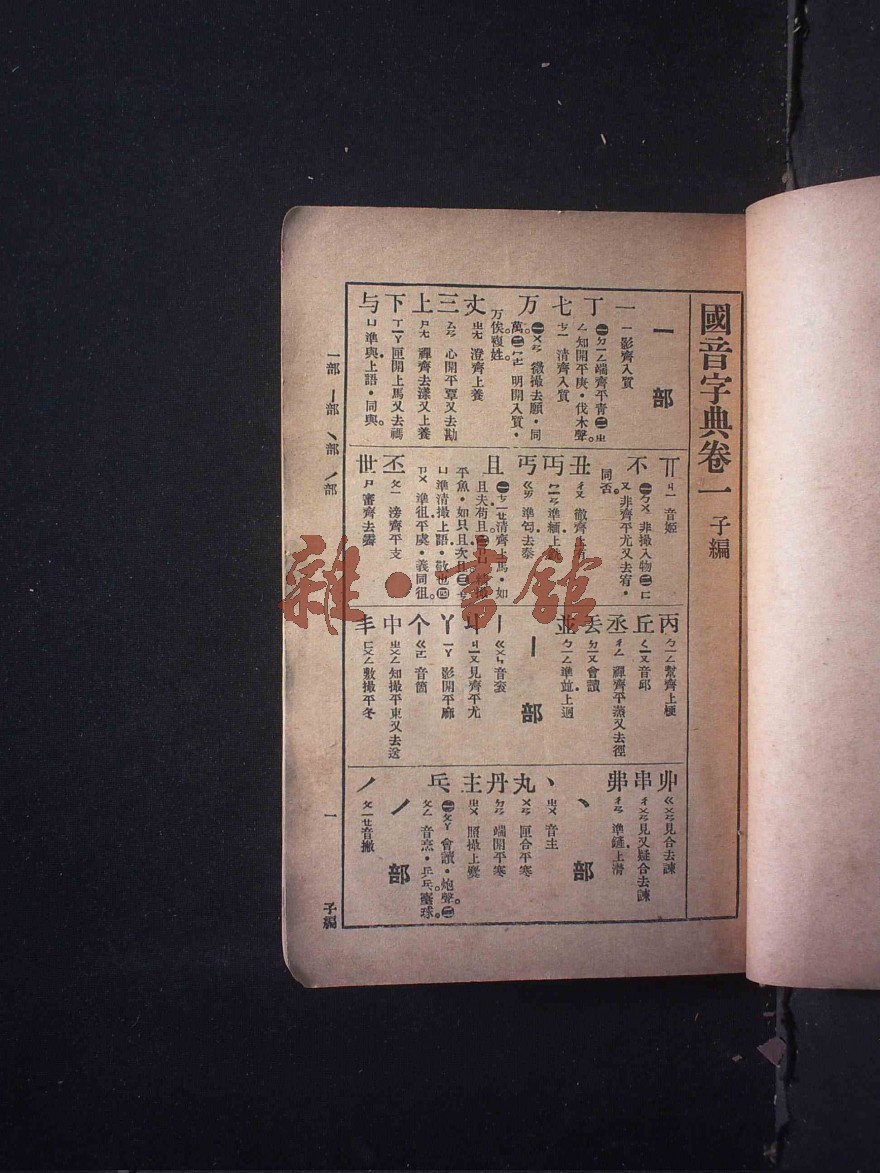 國音字典卷一 子編
一部
一 ㄧ 影齊入質
丁 ㊀ㄉㄧㄥ端齊平青㊁ㄓㄥ知開平庚·伐木聲。
七 ㄘㄧ 清齊入質
万 ㊀ㄪㄢ 微撮去願·同萬。㊁ㄇㄛ 明開入質·万俟複姓。
丈 ㄓㄤ 澄齊上養
三 ㄙㄢ 心開平覃又去勘
上 ㄕㄤ 禪齊去漾又上養
下 ㄒㄧㄚ 匣開上馬又去禡
与 ㄩ 準與上語·同與。
丌 ㄐㄧ 音姬
不 ㊀ㄅㄨ 非撮入物㊁ㄈㄡ 非齊平尤又去宥·同否。
丑 ㄔㄡ 徹齊上有
丏 ㄇㄧㄢ準緬上銑
丐 ㄍㄞ 準匄去泰
且 ㊀ㄑㄧㄝ清齊上馬·如且夫苟且。㊁ㄐㄩ 精撮平魚·如只且次且㊂ㄑㄩ準清撮上語·敬也㊃ㄗㄨ 準徂平虞·義同徂。
丕 ㄆㄧ 滂齊平支
世 ㄕ 審齊去霽
丙 ㄅㄧㄥ幫齊上梗
丘 ㄑㄧㄡ音邱
丞 ㄔㄥ 禪齊平蒸又去徑
丟 ㄉㄧㄡ會讀
並 ㄅㄧㄥ準竝上迥
丨部
丨 ㄍㄨㄣ音袞
丩 ㄐㄧㄡ見齊平尤
丫 ㄧㄚ 影開平麻
个 ㄍㄛ 音箇
中 ㄓㄨㄥ知撮平東又去送
丰 ㄈㄨㄥ敷撮平冬
丱 ㄍㄨㄢ見合去諫
串 ㄔㄨㄢ見又疑合去諫
丳 ㄔㄢ 準鏟上潸
丶部
丶 ㄓㄨ 音主
丸 ㄨㄢ 匣合平寒
丹 ㄉㄢ 端開平寒
主 ㄓㄨ 照撮上麌
乓 ㊀ㄆㄚ 會讀·炮聲。㊁ㄆㄥ 音烹·乒乓臺球。
丿部
丿 ㄆㄧㄝ音撇
一部 丨部 丶部 丿部
一 子編
雜·書館